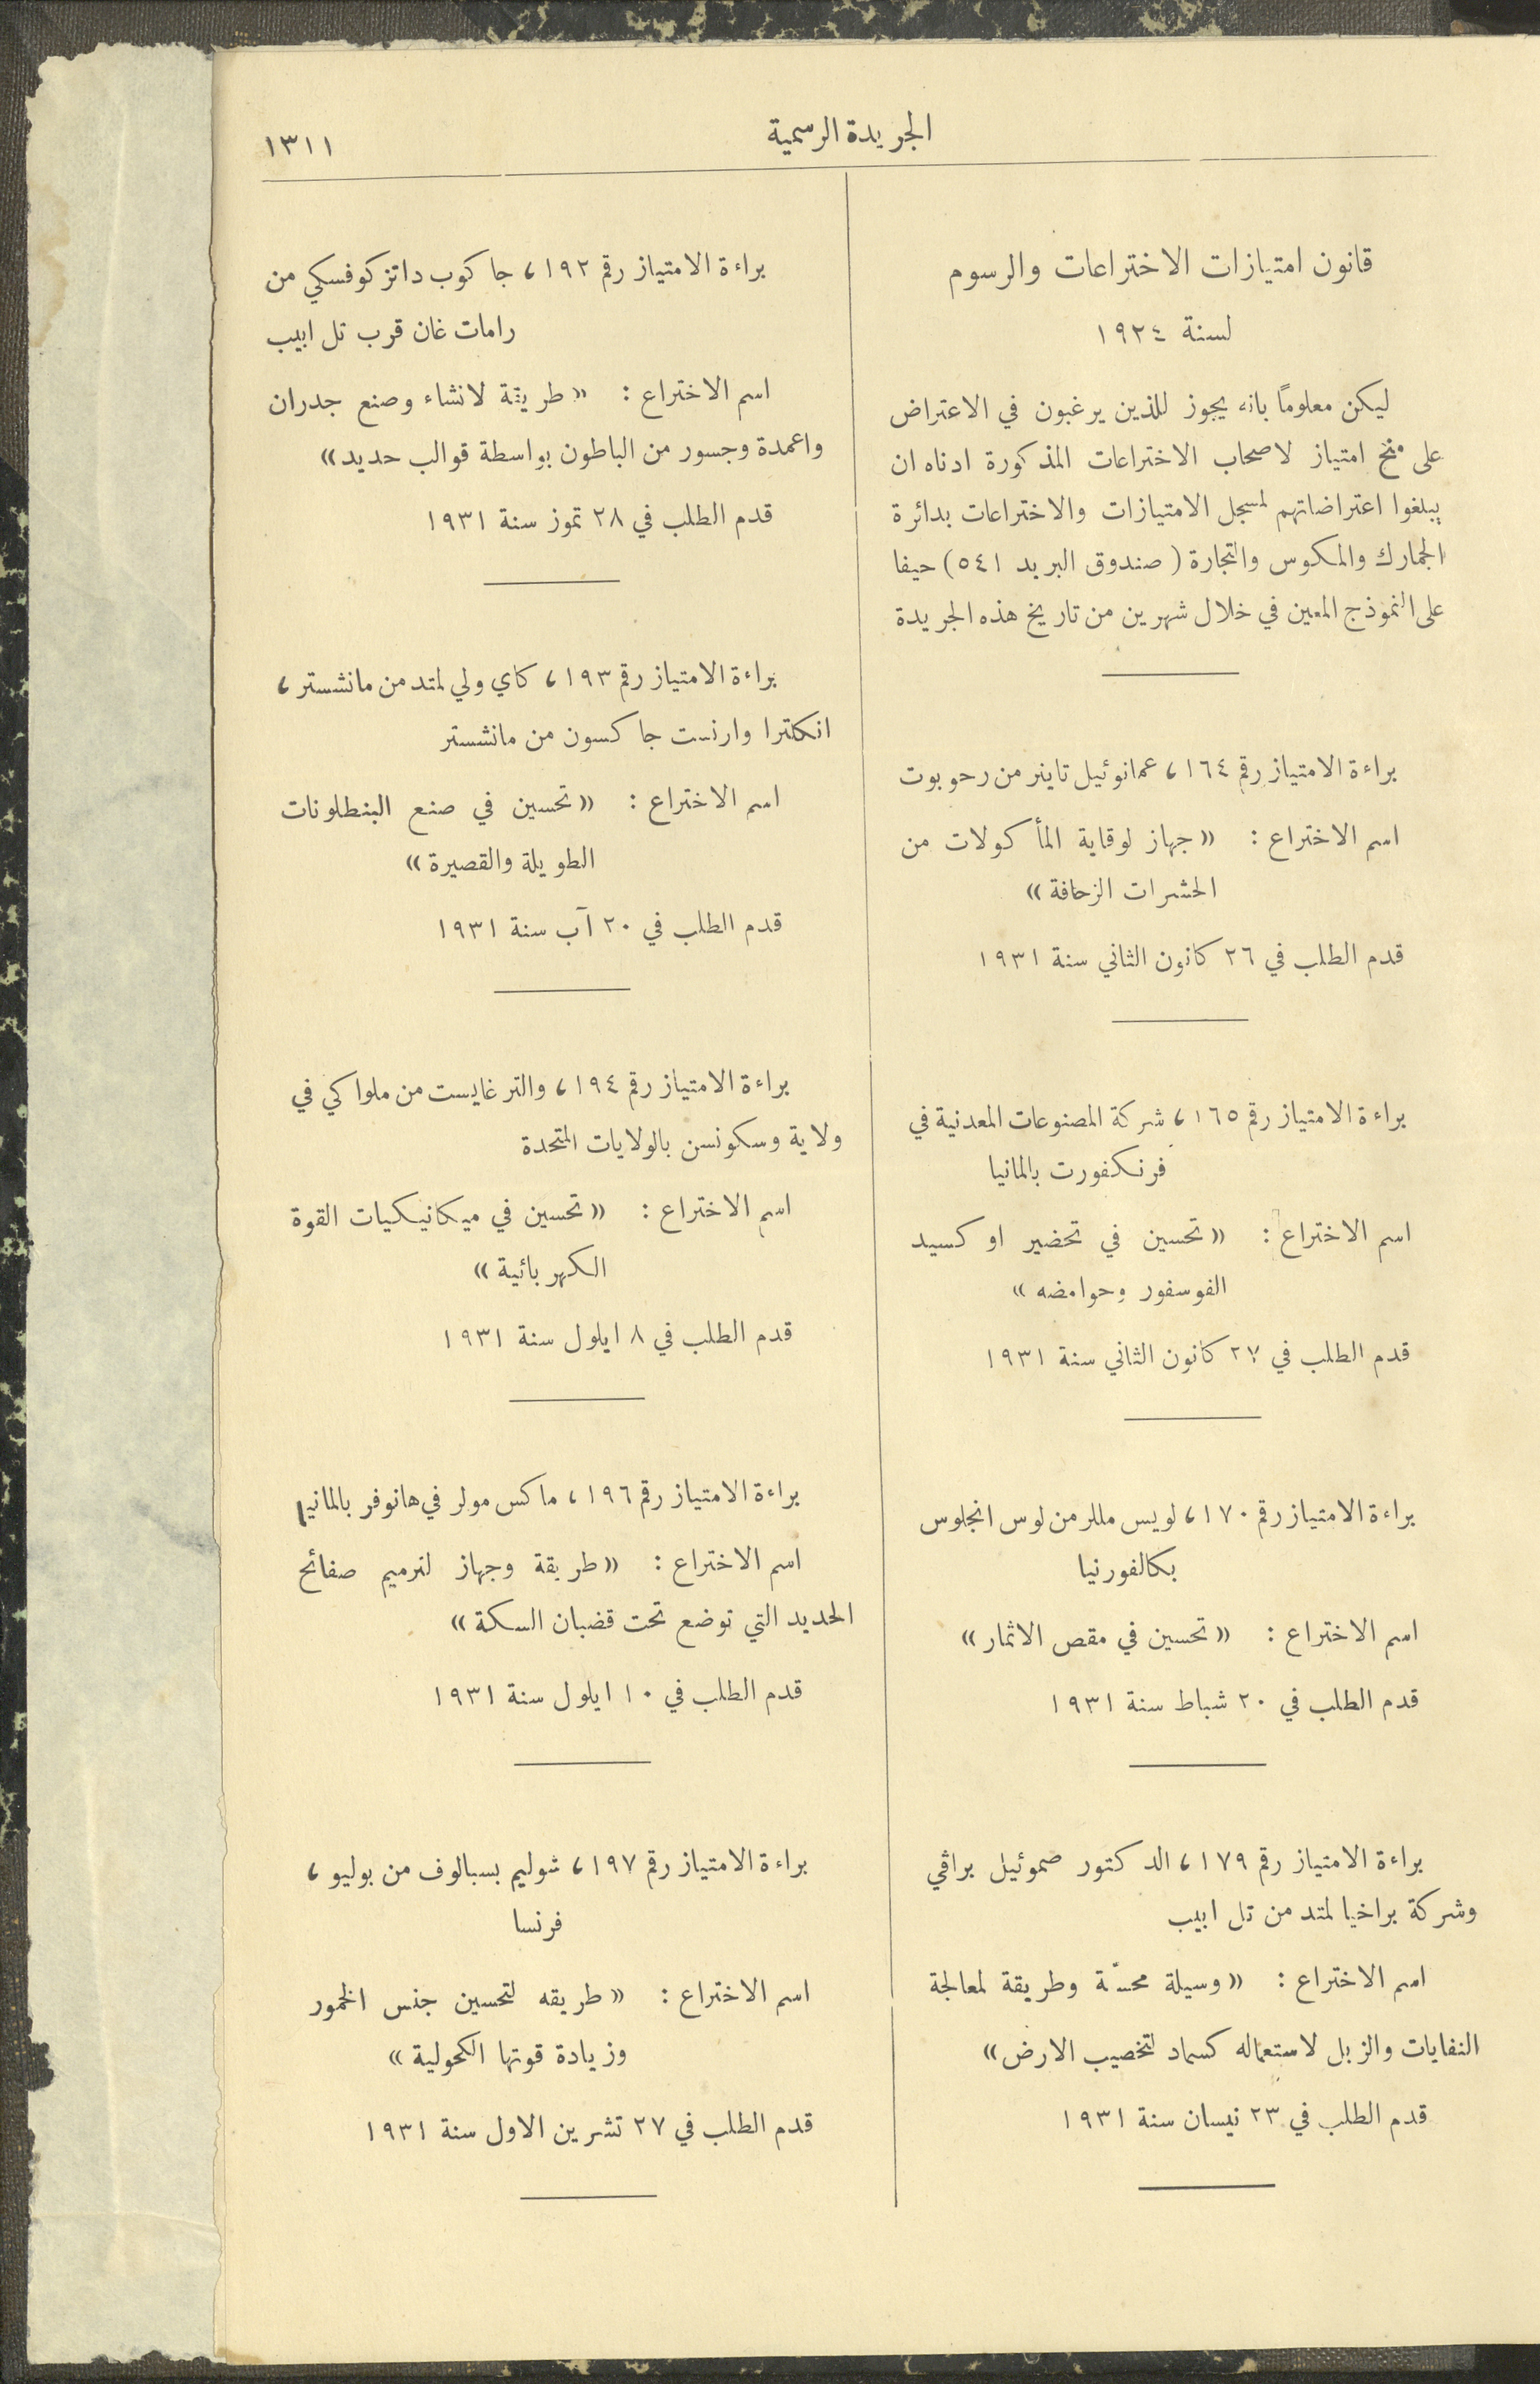 الجريدة الرسمية
١٣١١
قانون امتيازات الاختراعات والرسوم
لسنة ١٩٢٤
ليكن معلوماً بانه يجوز للذين يرغبون في الاعتراض
على منح امتياز لاصحاب الاختراعات المذكورة ادناه ان
يبلغوا اعتراضاتهم لمسجل الامتيازات والاختراعات بدائرة
الجمارك والمكوس والتجارة ( صندوق البريد ٥٤١ ) حيفا
على النموذج المعين في خلال شهرين من تاريخ هذه الجريدة
براءة الامتياز رقم ١٦٤ ، عمانوئيل تاينر من رحوبوت
اسم الاختراع : « جهاز لوقاية المأكولات من
الحشرات الزحافة »
قدم الطلب في ٢٦ كانون الثاني سنة ١٩٣١
براءة الامتياز رقم ١٦٥ ، شركة المصنوعات المعدنية في
فرنكفورت بالمانيا
اسم الاختراع : « تحسين في تحضير اوكسيد
الفوسفور وحوامضه »
قدم الطلب في ٢٧ كانون الثاني سنة ١٩٣١
براءة الامتياز رقم ١٧٠ ، لويس مللر من لوس انجلوس
بكالفورنيا
اسم الاختراع : « تحسين في مقص الاثمار »
قدم الطلب في ٢٠ شباط سنة ١٩٣١
براءة الامتياز رقم ١٧٩ ، الدكتور صموئيل براقي
وشركة براخيا لمتد من تل ابيب
اسم الاختراع : « وسيلة محسّنة وطريقة لمعالجة
النفايات والزبل لاستعماله كسماد لتخصيب الارض »
قدم الطلب في ٢٣ نيسان سنة ١٩٣١
براءة الامتياز رقم ١٩٢ ، جاكوب داتزكوفسكي من
رامات غان قرب تل ابيب
اسم الاختراع : « طريقة لانشاء وصنع جدران
واعمدة وجسور من الباطون بواسطة قوالب حديد »
قدم الطلب في ٢٨ تموز سنة ١٩٣١
براءة الامتياز رقم ١٩٣ ، كاي ولي لمتد من مانشستر ،
انكلترا وارنست جاكسون من مانشستر
اسم الاختراع : « تحسين في صنع البنطلونات
الطويلة والقصيرة »
قدم الطلب في ٢٠ آب سنة ١٩٣١
براءة الامتياز رقم ١٩٤ ، والتر غايست من ملواكي في
ولاية وسكونسن بالولايات المتحدة
اسم الاختراع : « تحسين في ميكانيكيات القوة
الكهربائية »
قدم الطلب في ٨ ايلول سنة ١٩٣١
براءة الامتياز رقم ١٩٦ ، ماكس مولر في هانوفر بالمانيا
اسم الاختراع : « طريقة وجهاز لترميم صفائح
الحديد التي توضع تحت قضبان السكة »
قدم الطلب في ١٠ ايلول سنة ١٩٣١
براءة الامتياز رقم ١٩٧ ، شوليم بسبالوف من بوليو ،
فرنسا
اسم الاختراع : « طريقه لتحسين جنس الخمور
وزيادة قوتها الكحولية »
قدم الطلب في ٢٧ تشرين الاول سنة ١٩٣١